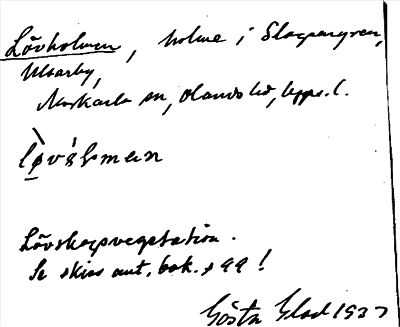 Lövholmen, holme i Slagpengren,
Ulvarby,
Morkarla sn, Olands hd, Upps. l.
lø̀vạ̊lmen
Lövskogsvegetation.
Se skiss ant. bok. s 99!
Gösta Elad 1937